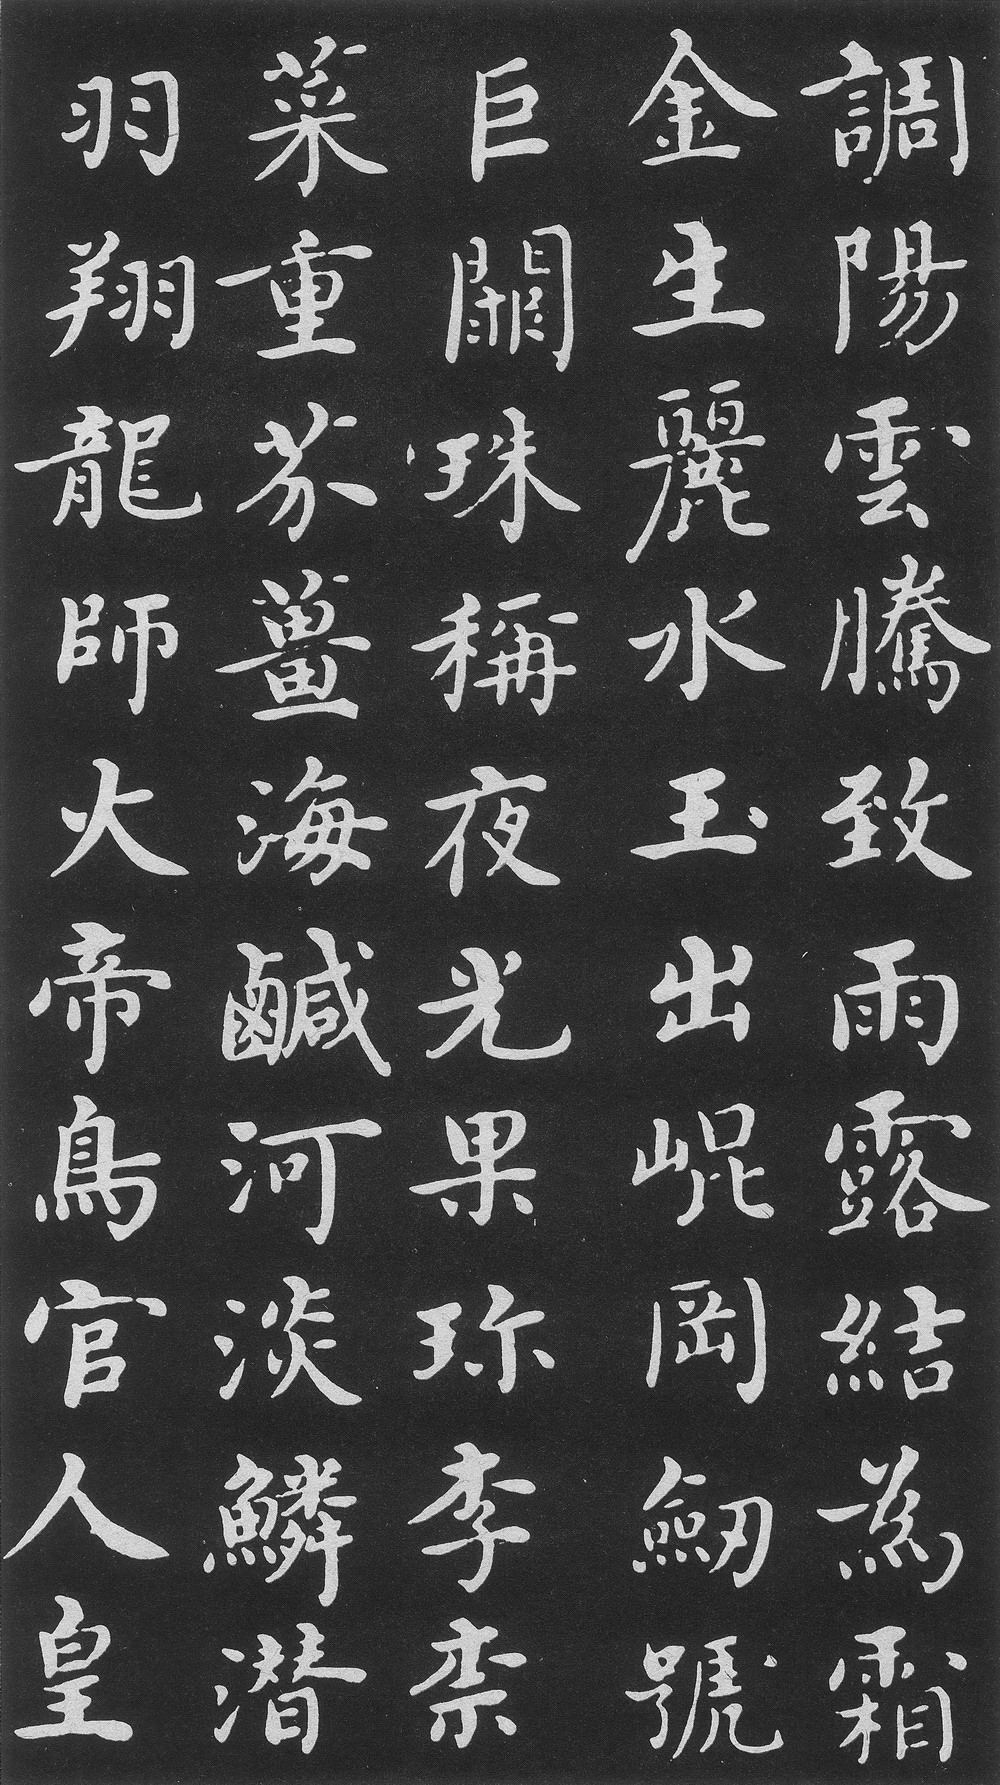 調陽雲騰致雨露結為霜
金生麗水玉出崐岡劒號
巨闕珠稱夜光果珎李柰
菜重芥薑海鹹河淡鱗潛
羽翔龍師火帝鳥官人皇